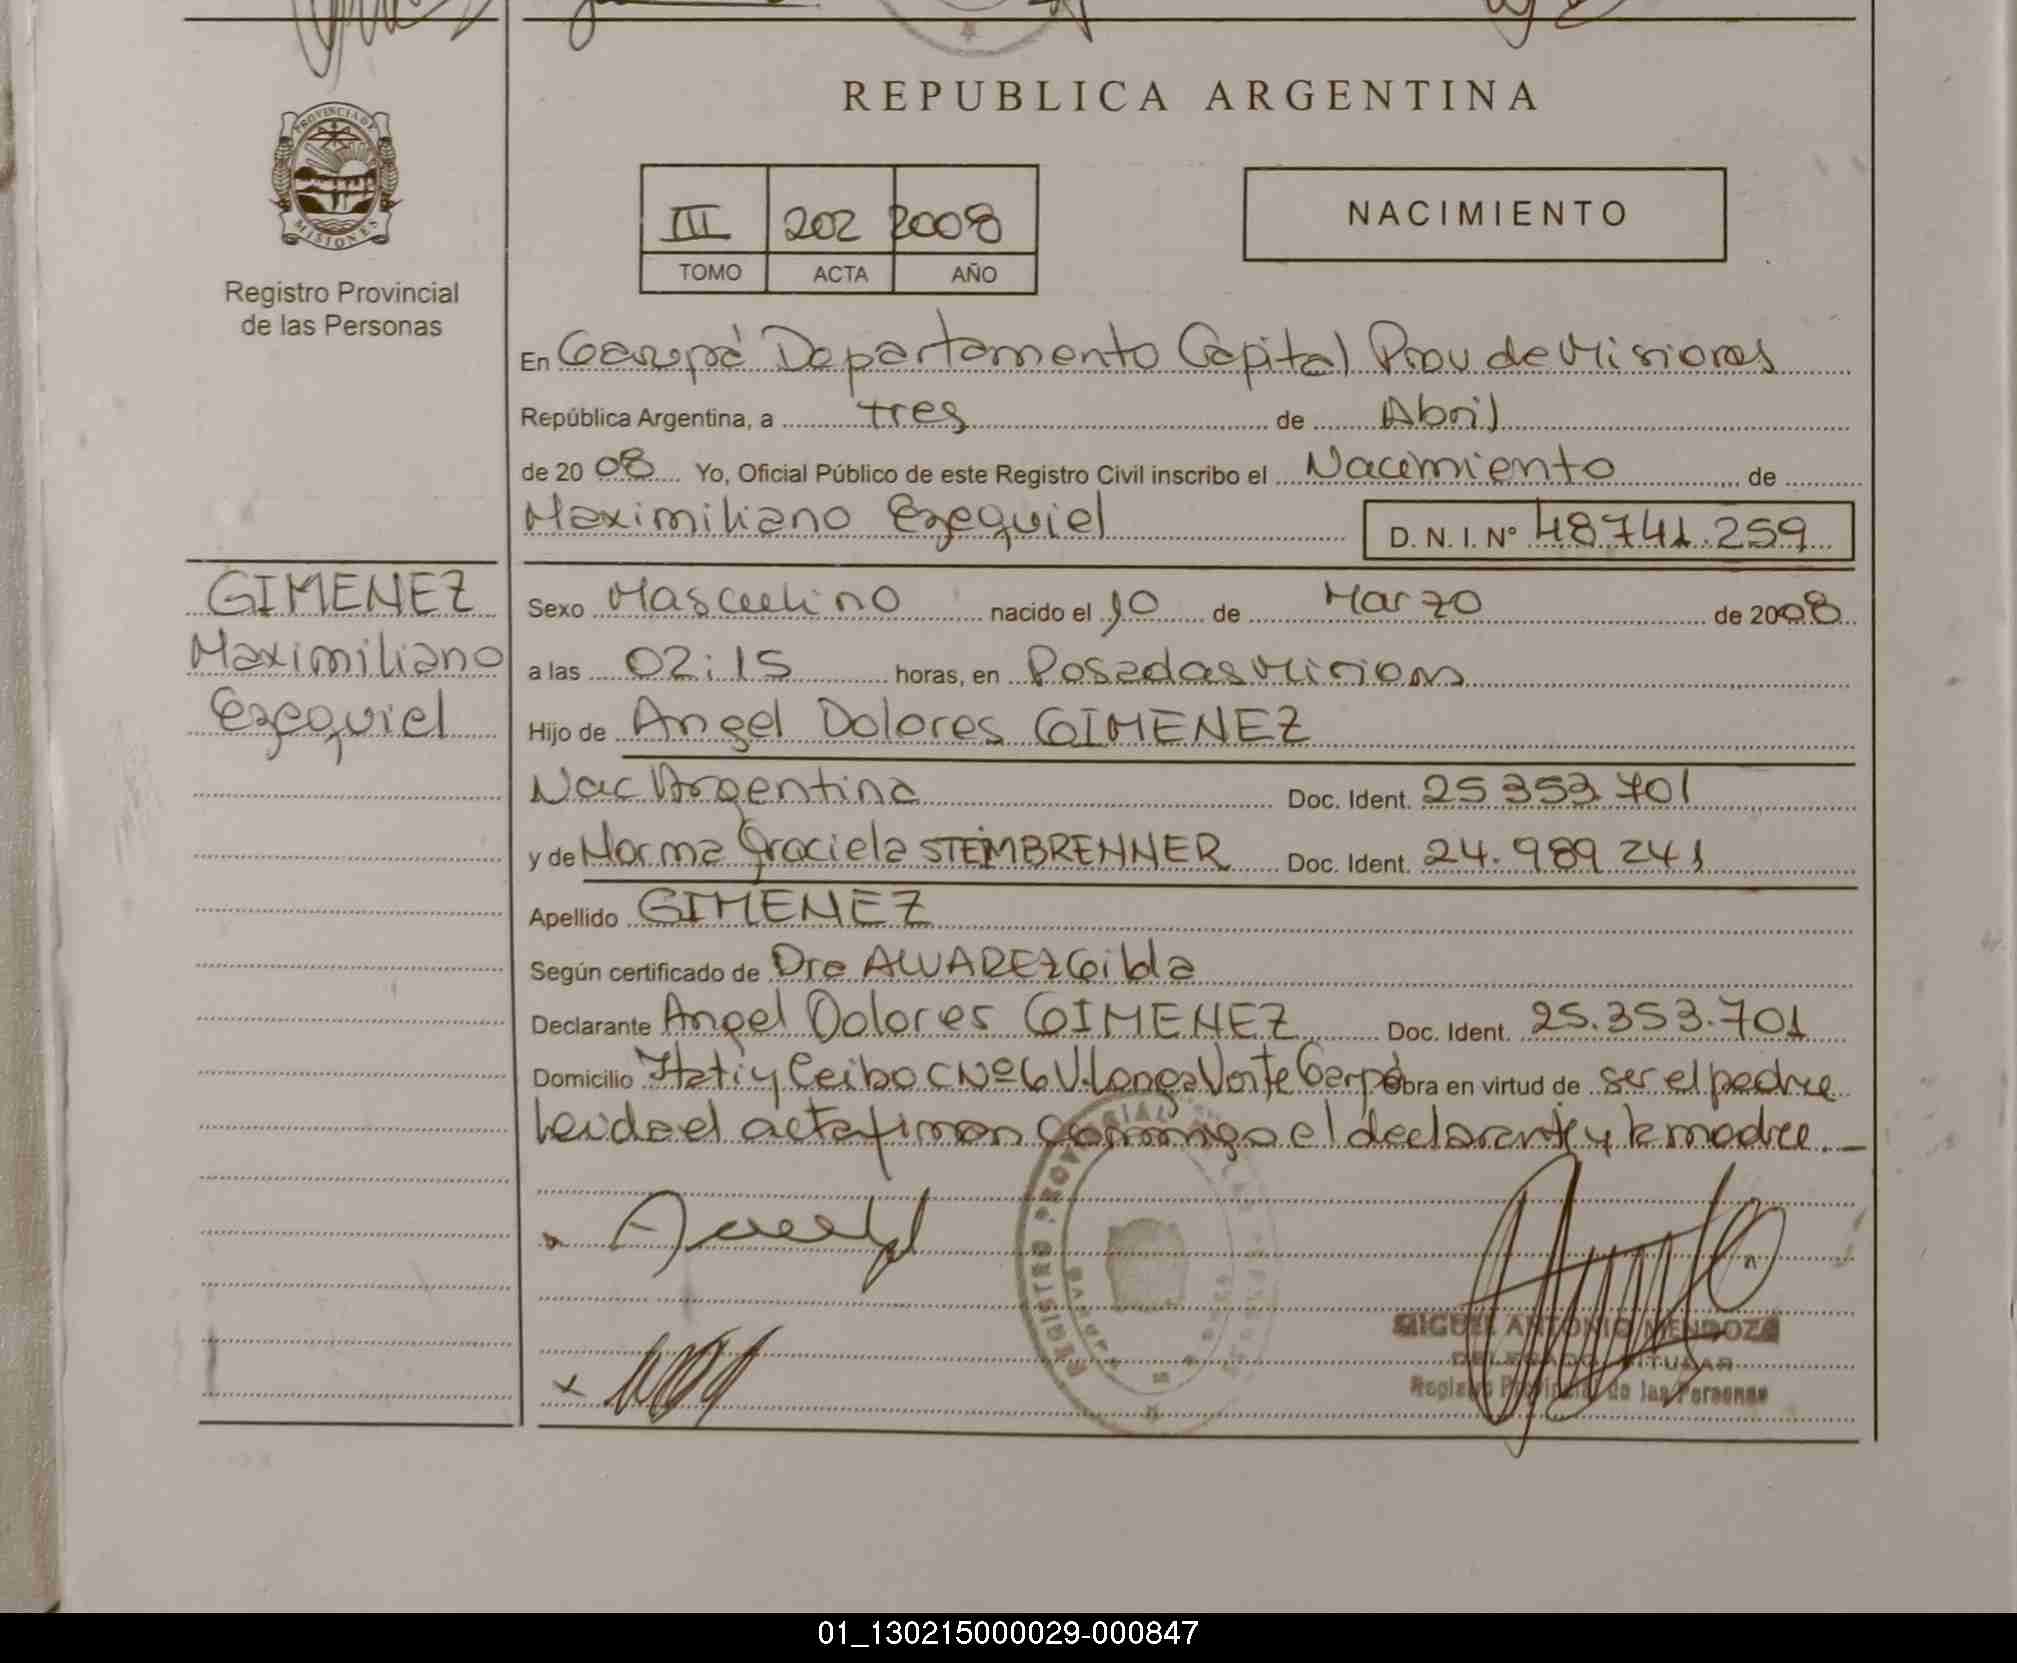 REPUBLICA ARGENTINA
PROVINCIA DE MISIONES
Registro Provincial
de las Personas
III 202 2008
TOMO ACTA AÑO
NACIMIENTO
En Garupá Departamento Capital Prov de Misiones
República Argentina, a tres de Abril
de 2008 Yo, Oficial Público de este Registro Civil inscribo el Nacimiento de
Maximiliano Ezequiel D. N. I. Nº 48741.259
GIMENEZ
Maximiliano
Ezequiel
Sexo Masculino nacido el 10 de Marzo de 2008
a las 02:15 horas, en Posadas Misiones
Hijo de Angel Dolores GIMENEZ
Nac Argentina Doc. Ident. 25353701
y de Norma Graciela STEIMBRENNER Doc. Ident. 24.989241
Apellido GIMENEZ
Según certificado de Dra ALVAREZ Gilda
Declarante Angel Dolores GIMENEZ Doc. Ident. 25.353.701
Domicilio Itati y Ceibo C Nº6 V. Longa Obra en virtud de ser el padre
Leida el acta firman conmigo el declarante y la madre.-
REGISTRO PROVINCIAL DE LAS PERSONAS
GARUPA
MIGUEL ANTONIO MENDOZA
DELEGADO TITULAR
Registro Provincial de las Personas
01_130215000029-000847